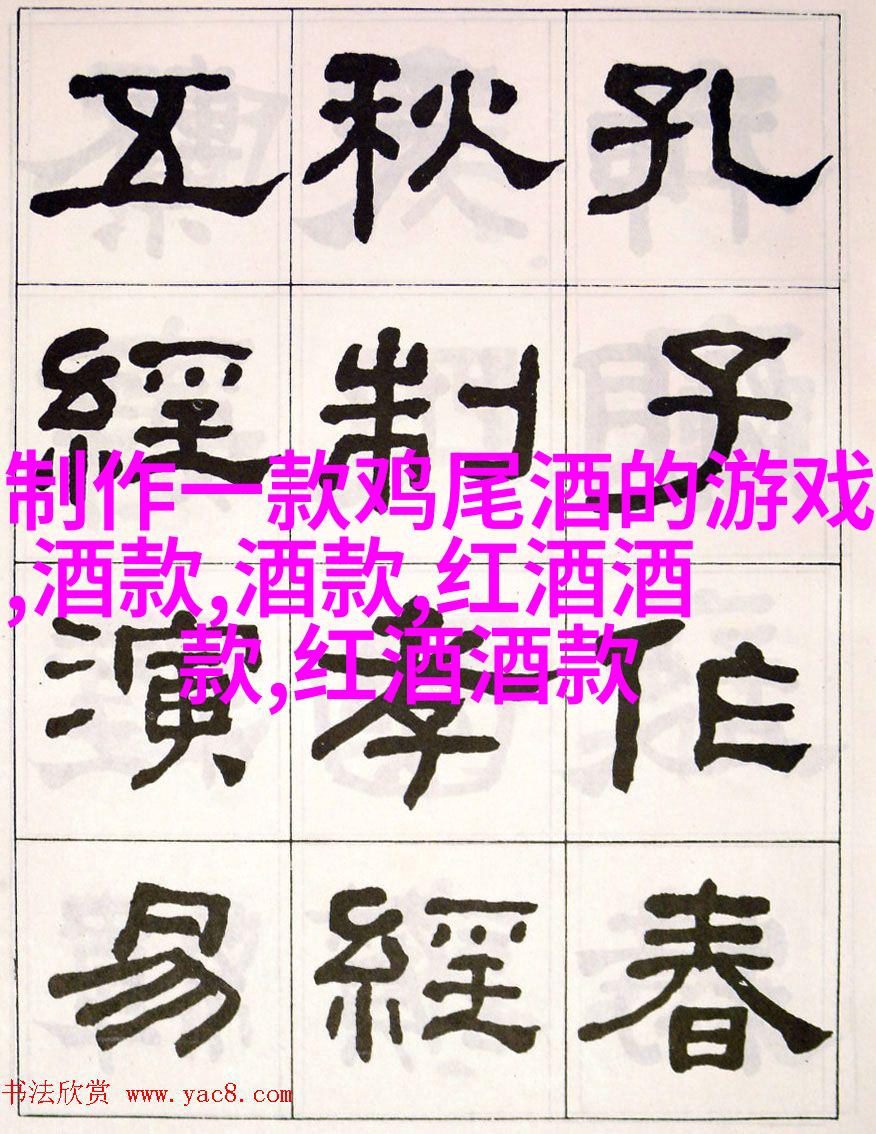 孔子作春
秋制孝經
五經演易
制作一款鸡尾酒的游戏
,酒款,酒款,红酒酒
款,红酒酒款
书法欣赏 www.yac8.com